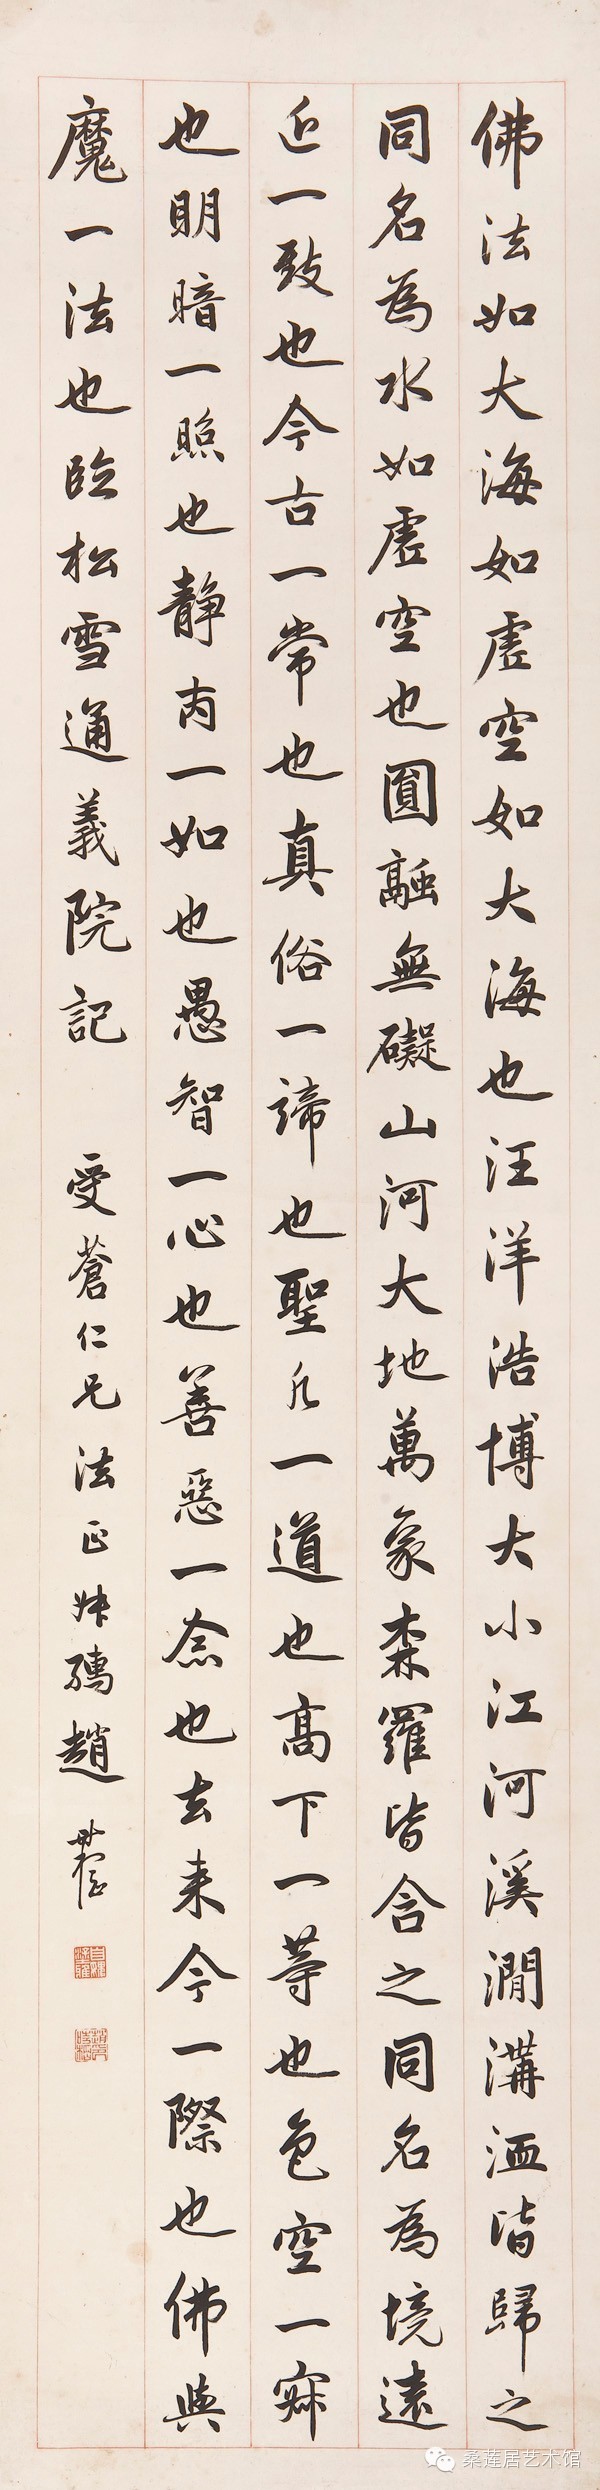 佛法如大海如虛空如大海也汪洋浩博大小江河溪澗溝洫皆歸之
同名為水如虛空也圓融無礙山河大地萬象森羅皆含之同名為境遠
近一致也今古一常也真俗一諦也聖凡一道也高下一等也色空一寂
也明暗一照也静丙一如也愚智一心也善惡一念也去来今一際也佛與
魔一法也臨松雪通義院記
受蒼仁兄法正妹璚趙
桑莲居艺术馆